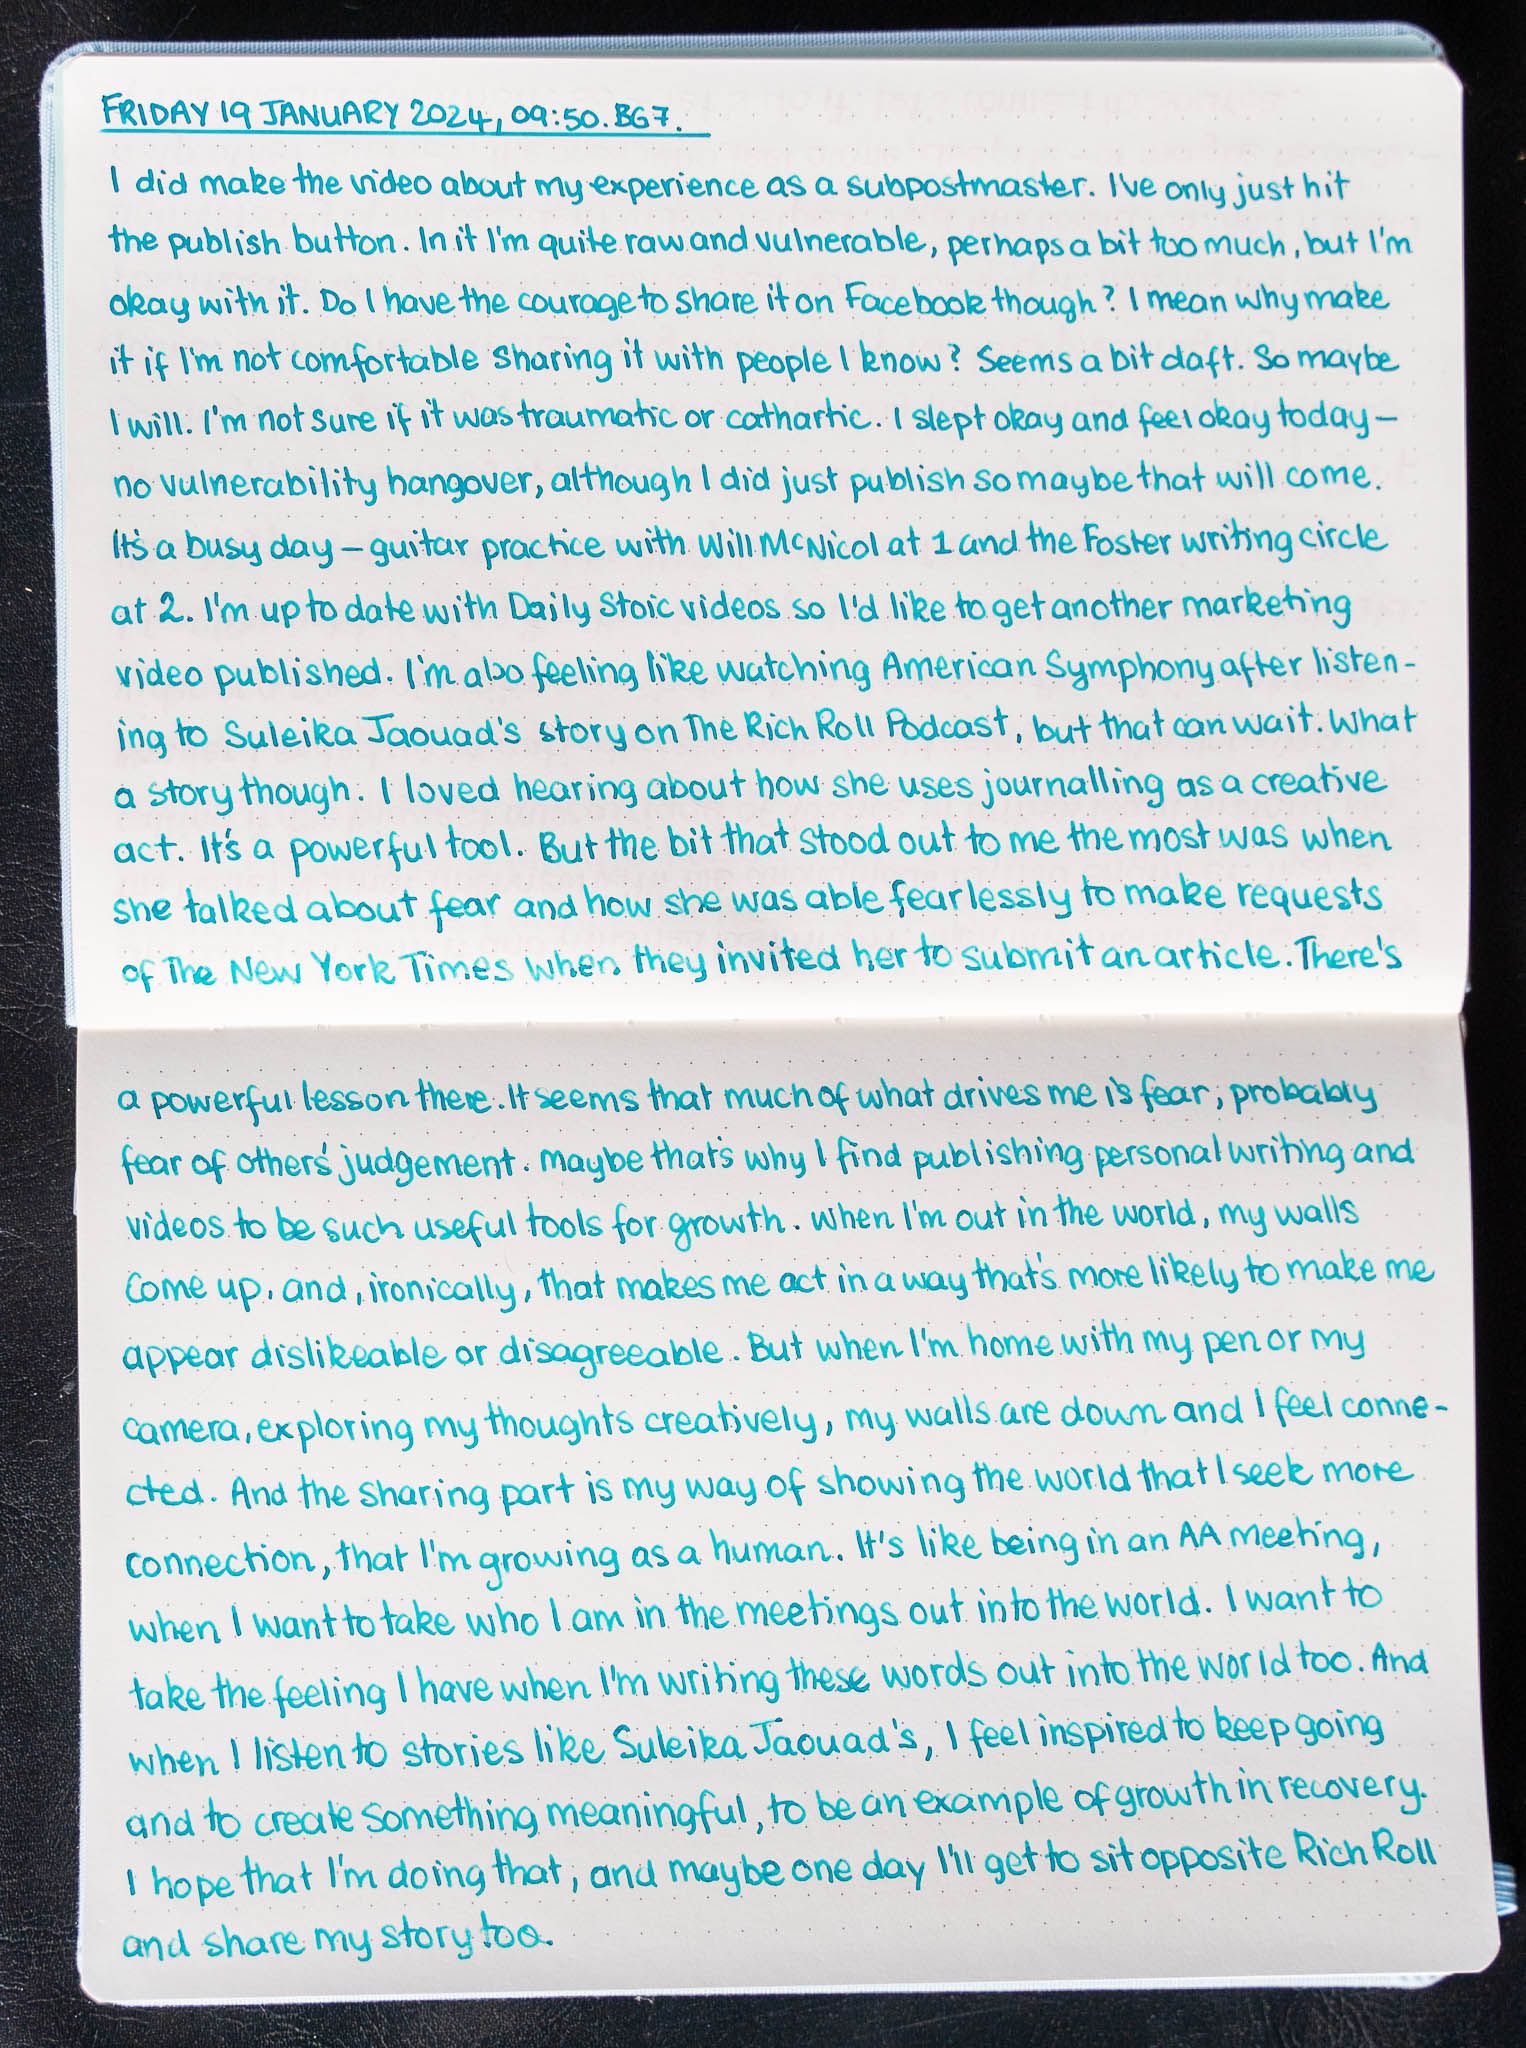 FRIDAY 19 JANUARY 2024, 09:50. BG7.
I did make the video about my experience as a subpostmaster. I've only just hit
the publish button. In it I'm quite raw and vulnerable, perhaps a bit too much, but I'm
okay with it. Do I have the courage to share it on Facebook though? I mean why make
it if I'm not comfortable sharing it with people I know? Seems a bit daft. So maybe
I will. I'm not sure if it was traumatic or cathartic. I slept okay and feel okay today –
no vulnerability hangover, although I did just publish so maybe that will come.
It's a busy day – guitar practice with Will McNicol at 1 and the Foster writing circle
at 2. I'm up to date with Daily Stoic videos so I'd like to get another marketing
video published. I'm also feeling like watching American Symphony after listen-
ing to Suleika Jaouad's story on The Rich Roll Podcast, but that can wait. What
a story though. I loved hearing about how she uses journalling as a creative
act. It's a powerful tool. But the bit that stood out to me the most was when
she talked about fear and how she was able fearlessly to make requests
of The New York Times when they invited her to submit an article. There's
a powerful lesson there. It seems that much of what drives me is fear, probably
fear of others' judgement. Maybe that's why I find publishing personal writing and
videos to be such useful tools for growth. When I'm out in the world, my walls
come up, and, ironically, that makes me act in a way that's more likely to make me
appear dislikeable or disagreeable. But when I'm home with my pen or my
camera, exploring my thoughts creatively, my walls are down and I feel conne-
cted. And the sharing part is my way of showing the world that I seek more
connection, that I'm growing as a human. It's like being in an AA meeting,
when I want to take who I am in the meetings out into the world. I want to
take the feeling I have when I'm writing these words out into the world too. And
when I listen to stories like Suleika Jaouad's, I feel inspired to keep going
and to create something meaningful, to be an example of growth in recovery.
I hope that I'm doing that, and maybe one day I'll get to sit opposite Rich Roll
and share my story too.